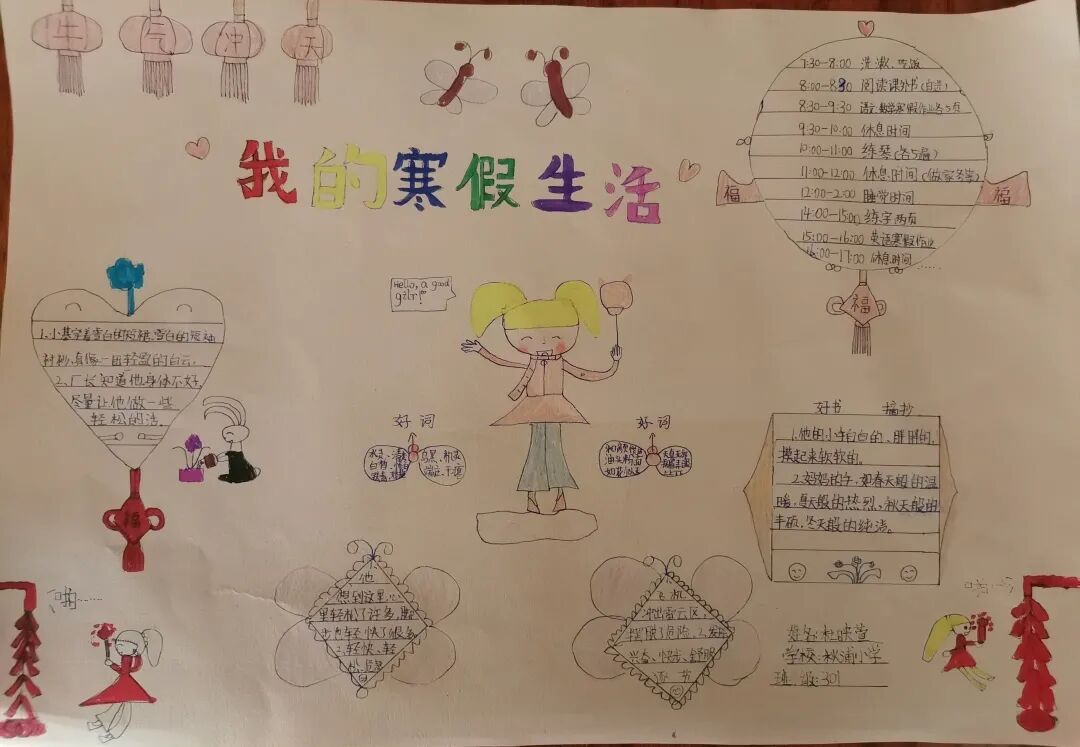 牛气冲天
我的寒假生活
7:30-8:00 洗漱、吃饭
8:00-8:30 阅读课外书(自选)
8:30-9:30 语文、数学寒假作业各5页
9:30-10:00 休息时间
10:00-11:00 练琴(各5遍)
11:00-12:00 休息时间(做家务等)
12:00-2:00 睡觉时间
14:00-15:00 练字两页
15:00-16:00 英语寒假作业
16:00-17:00 休息时间
福
福
福
Hello, a good
gilr!
1、小慧穿着雪白的短裙、雪白的短袖
衬衫,真像一团轻盈的白云。
2、厂长知道他身体不好,
尽量让他做一些
轻松的活。
福
好词
好词
乌黑、
好书 摘抄
1.他的小手白白的、胖胖的,
摸起来软软的。
2.妈妈的手,如春天般的温
暖,夏天般的热烈,秋天般的
丰硕,冬天般的纯洁。
他
想到这里,心
里轻松了许多,脚
步也轻快了很多
2、轻快、轻
松
飞机
雷云区
摆脱了危险。2、
兴奋、快乐、舒服
证书
姓名:杜映萱
学校:秋浦小学
班级:301
啪……
啪……